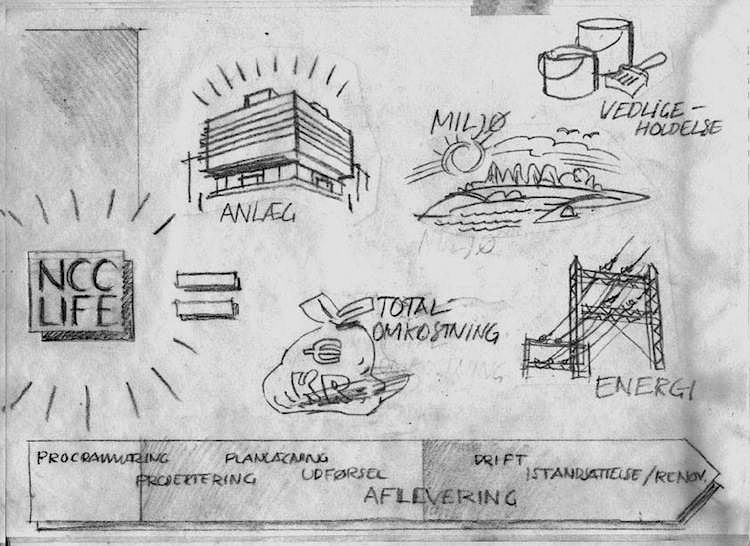 VEDLIGE-
HOLDELSE
MILJØ
ANLÆG
MILJØ
NCC
LIFE
=
TOTAL-
OMKOSTNING
ENERGI
PROGRAMMERING
PROJEKTERING
PLANLÆGNING
UDFØRSEL
AFLEVERING
DRIFT
ISTANDSÆTTELSE/RENOV.